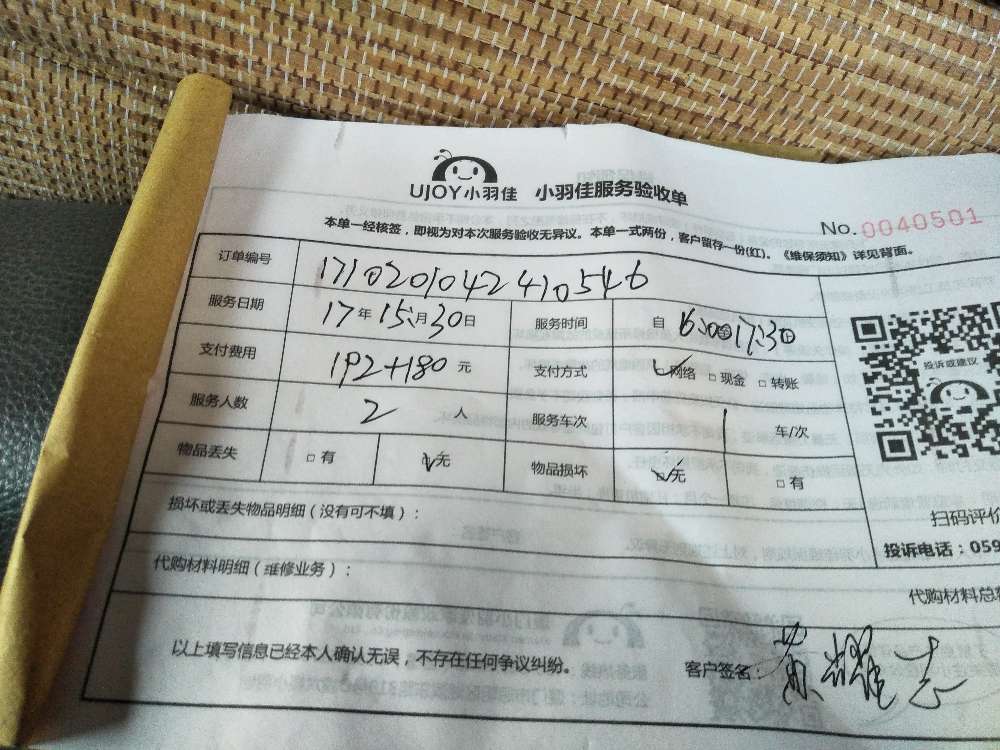 UJOY小羽佳 小羽佳服务验收单
No.0040501
本单一经核签，即视为对本次服务验收无异议。本单一式两份，客户留存一份(红)。《维保须知》详见背面。
订单编号 17102010424210546
服务日期 17年 月30日 服务时间 自 17:30
支付费用 192+180元 支付方式 网络 □现金 □转账
服务人数 2 人 服务车次 1 车/次
物品丢失 □有 无 物品损坏 无 □有
投诉或建议
损坏或丢失物品明细（没有可不填）：
扫码评价
投诉电话：059
代购材料明细（维修业务）：
代购材料总
以上填写信息已经本人确认无误，不存在任何争议纠纷。
客户签名 黄耀志